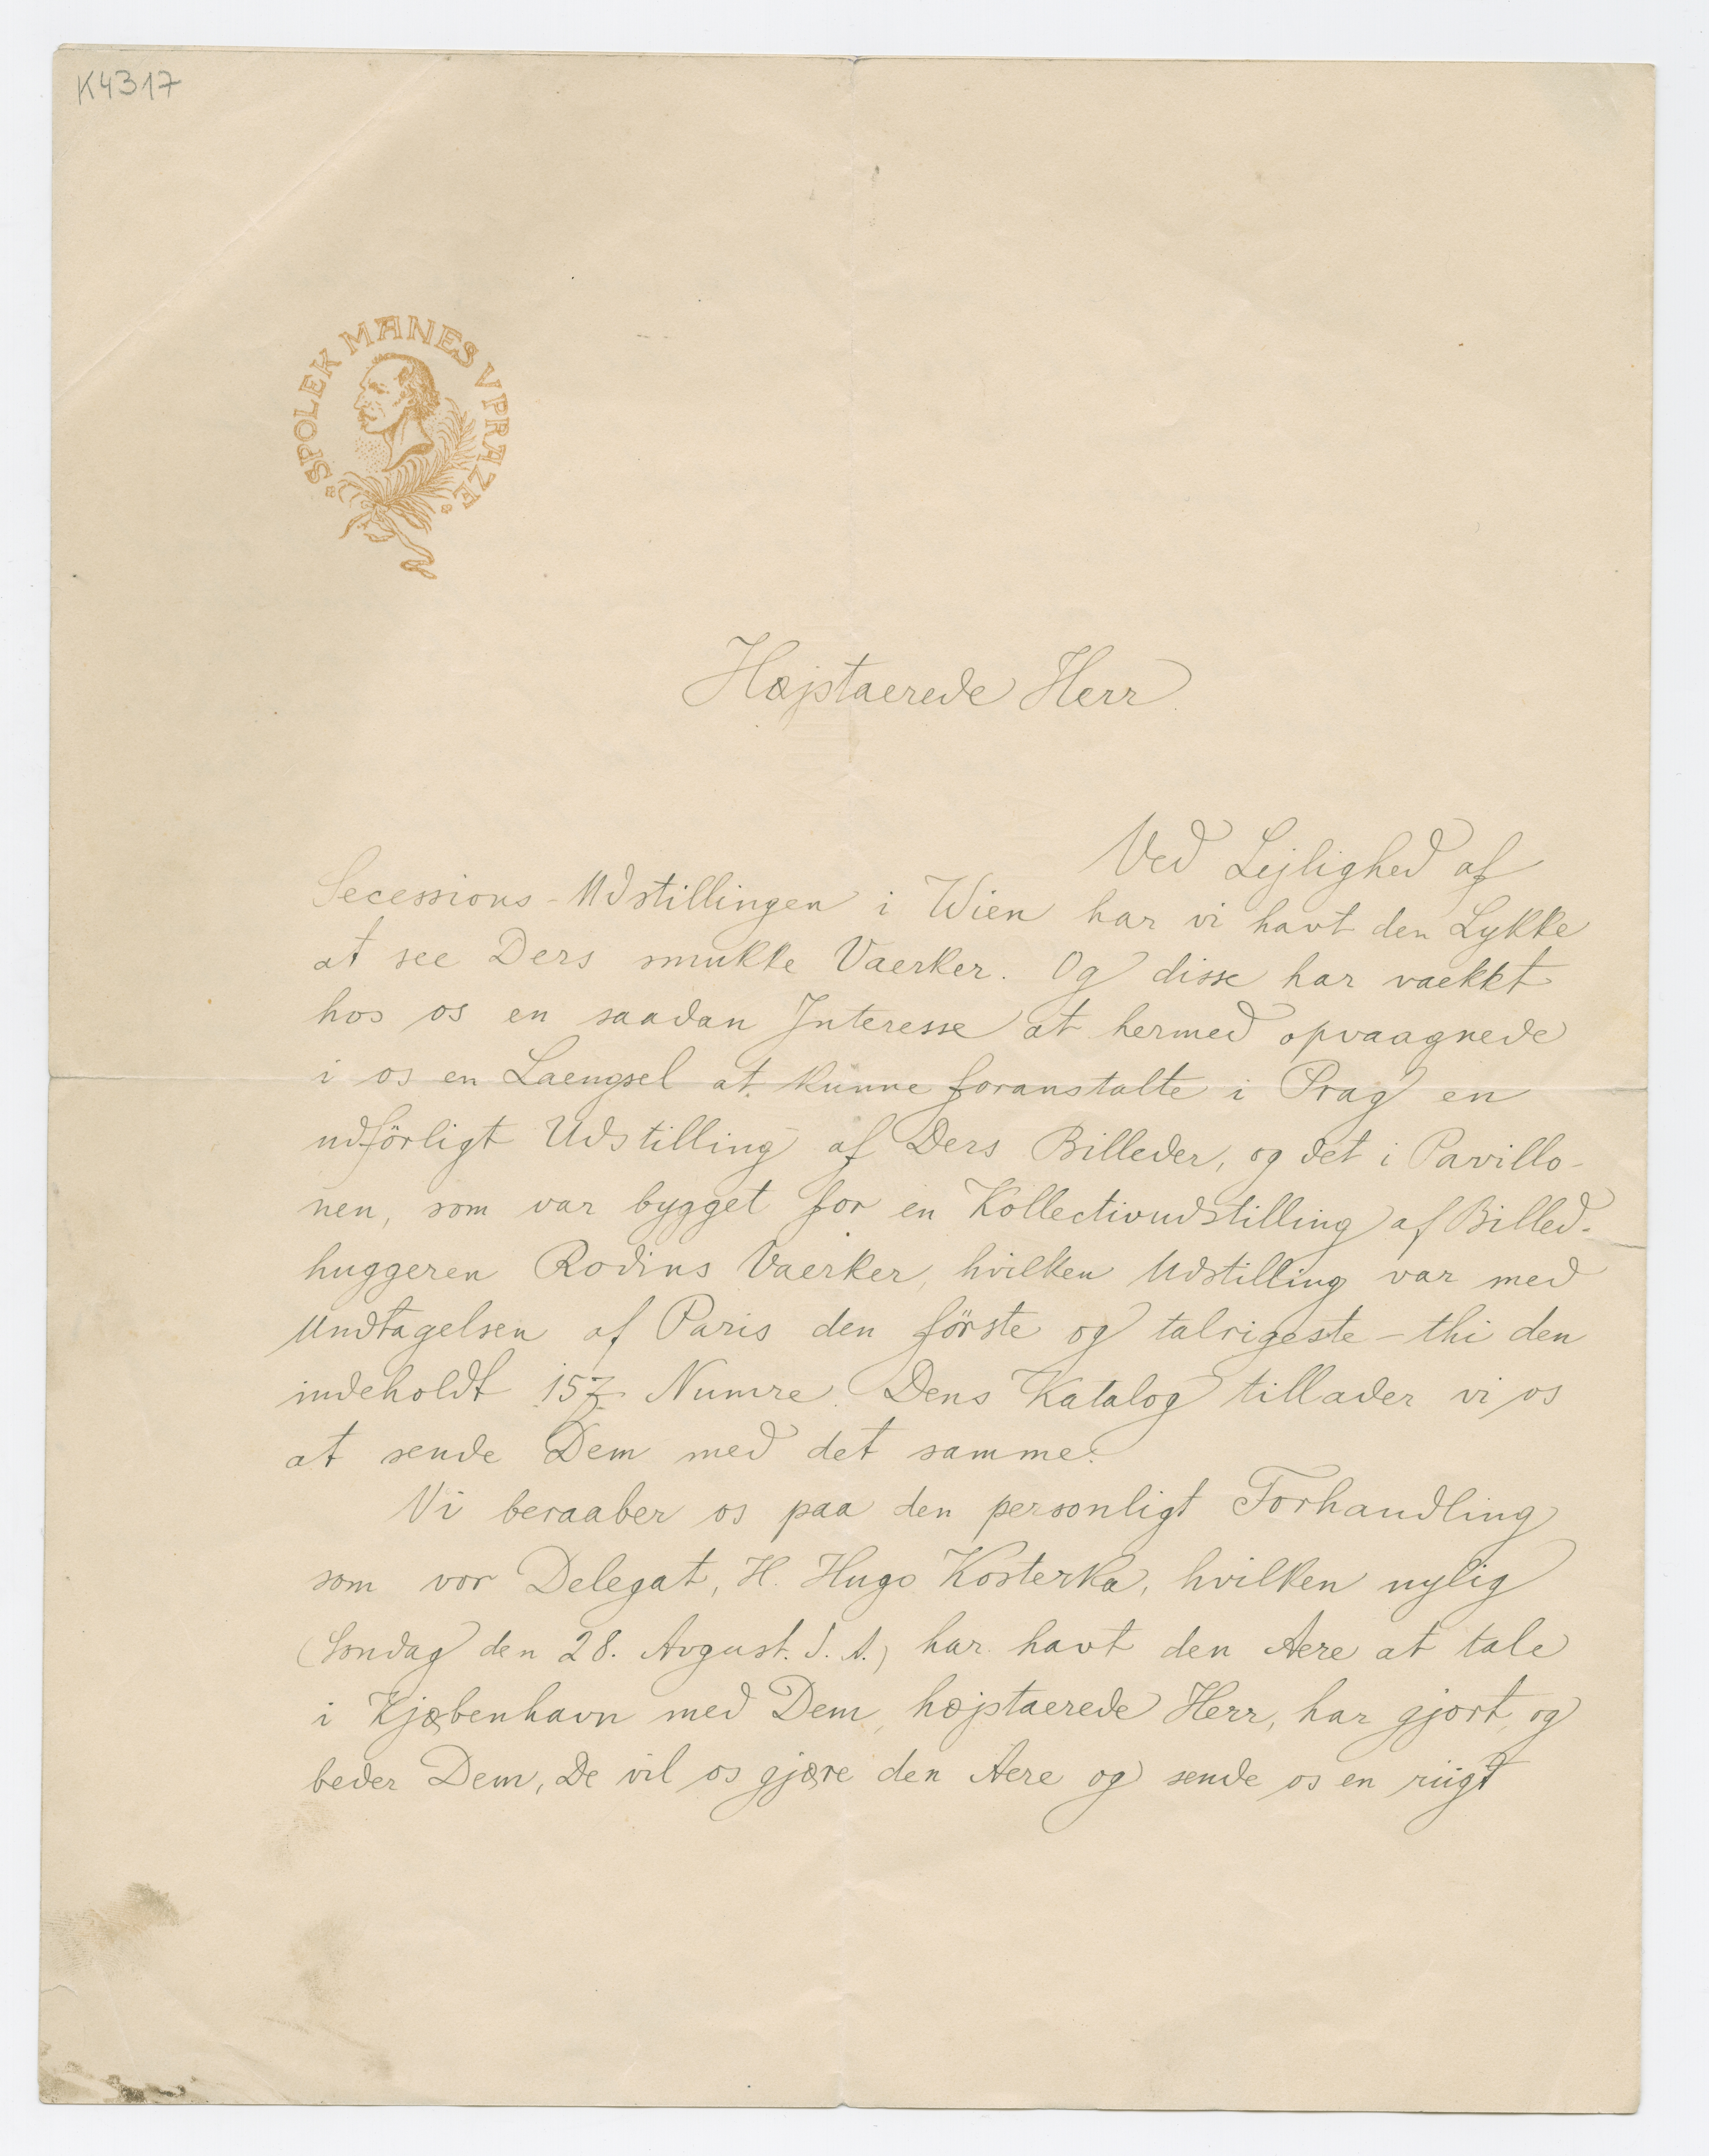 K4317
SPOLEK MANES V PRAZE
Højstaerede Herr.
Ved Lejlighed af
Secessions-Udstillingen i Wien har vi havt den Lykke
at see Ders smukke Vaerker. Og disse har vaekkt
hos os en saadan Interesse at hermed opvaagnede
i os en Laengsel at kunne foranstalte i Prag en
udförligt Udstilling af Ders Billeder, og det i Pavillo-
nen, som var bygget for en Kollectivudstilling af Billed-
huggeren Rodins Vaerker, hvilken Udstilling var med
Undtagelsen af Paris den förste og talrigeste - thi den
indeholdt 157 Numre. Dens Katalog tillader vi os
at sende Dem med det samme.
Vi beraaber os paa den personligt Forhandling
som vor Delegat, H. Hugo Kosterka, hvilken nylig
(Søndag den 28. Avgust. d. A.) har havt den Aere at tale
i Kjøbenhavn med Dem, højstaerede Herr, har gjort, og
beder Dem, De vil os gjøre den Aere og sende os en riigt